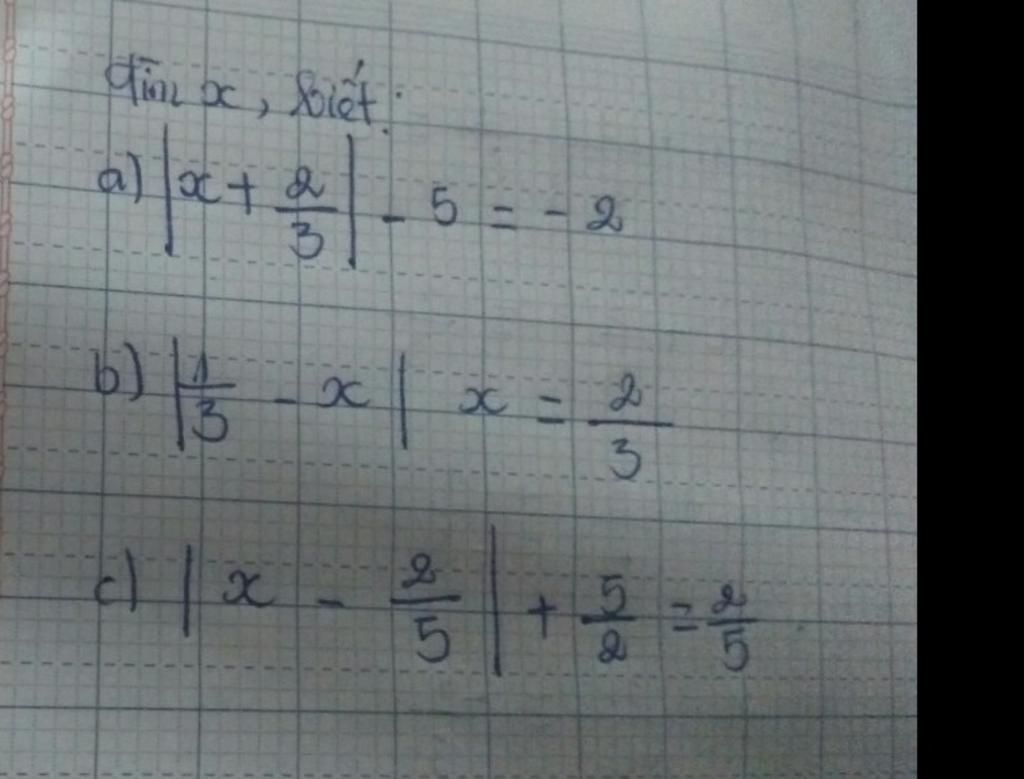 Tìm x, biết:
a) |x + 2/3| - 5 = - 2
b) |1/3 - x| x = 2/3
c) |x - 2/5| + 5/2 = 2/5